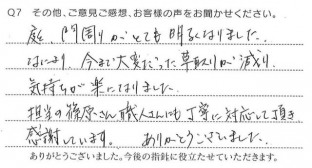 Q7 その他、ご意見ご感想、お客様の声をお聞かせください。
庭、門周りがとても明るくなりました。
なにより、今まで大変だった草取りが減り
気持ちが楽になりました。
担当の篠原さん、職人さんにも丁寧に対応して頂き
感謝しています。 ありがとうございました。
ありがとうございました。今後の指針に役立たせていただきます。